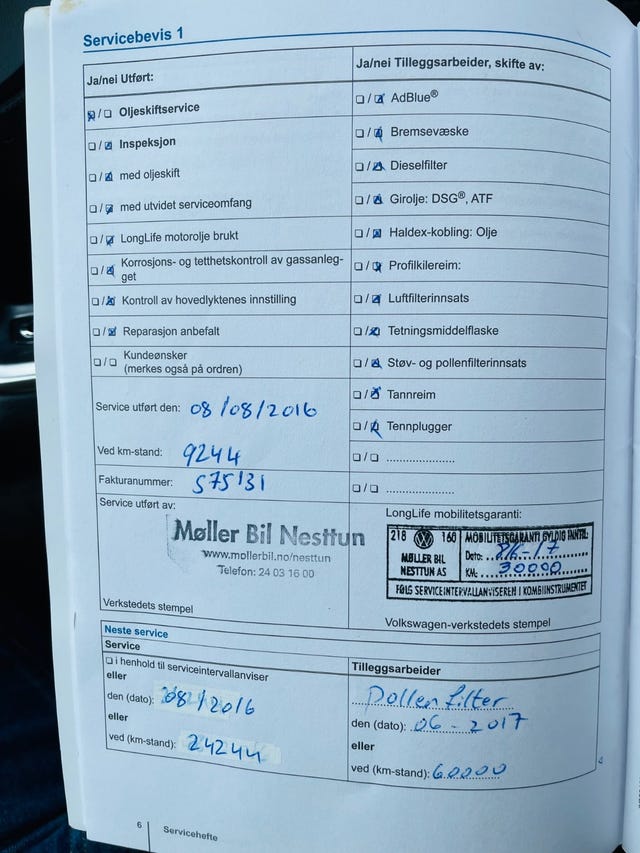 Servicebevis 1
Ja/nei Utført:
☒/☐ Oljeskiftservice
☐/☒ Inspeksjon
☐/☒ med oljeskift
☐/☒ med utvidet serviceomfang
☐/☒ LongLife motorolje brukt
☐/☒ Korrosjons- og tetthetskontroll av gassanleg-
get
☐/☒ Kontroll av hovedlyktenes innstilling
☐/☒ Reparasjon anbefalt
☐/☐ Kundeønsker
(merkes også på ordren)
Service utført den: 08/08/2016
Ved km-stand: 9244
Fakturanummer: 575131
Service utført av:
Møller Bil Nesttun
www.mollerbil.no/nesttun
Telefon: 24 03 16 00
Verkstedets stempel
Ja/nei Tilleggsarbeider, skifte av:
☐/☒ AdBlue®
☐/☒ Bremsevæske
☐/☒ Dieselfilter
☐/☒ Girolje: DSG®, ATF
☐/☒ Haldex-kobling: Olje
☐/☒ Profilkilereim:
☐/☒ Luftfilterinnsats
☐/☒ Tetningsmiddelflaske
☐/☒ Støv- og pollenfilterinnsats
☐/☒ Tannreim
☐/☒ Tennplugger
☐/☐ ......................
☐/☐ ......................
LongLife mobilitetsgaranti:
218 160
MØLLER BIL
NESTTUN AS
MOBILITETSGARANTI GYLDIG INNTIL:
Dato:
KM: 30000
FØLG SERVICEINTERVALLANVISEREN I KOMBIINSTRUMENTET
Volkswagen-verkstedets stempel
Neste service
Service
☐ i henhold til serviceintervallanviser
eller
den (dato): 08/2016
eller
ved (km-stand): 24244
Tilleggsarbeider
Pollenfilter
den (dato): 06 - 2017
eller
ved (km-stand): 60000
6
Servicehefte